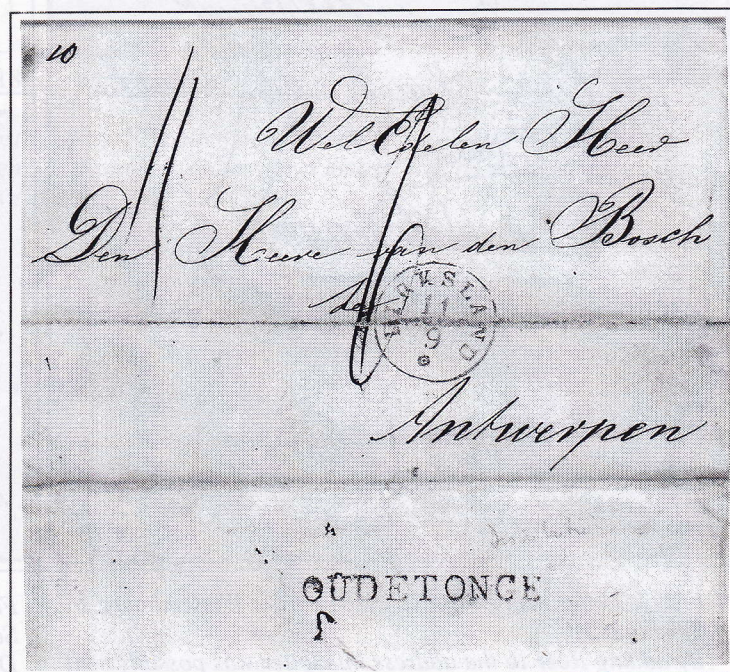 10
Wel Edelen Heer
Den Heere van den Bosch
te
11
9
Antwerpen
OUDETONGE